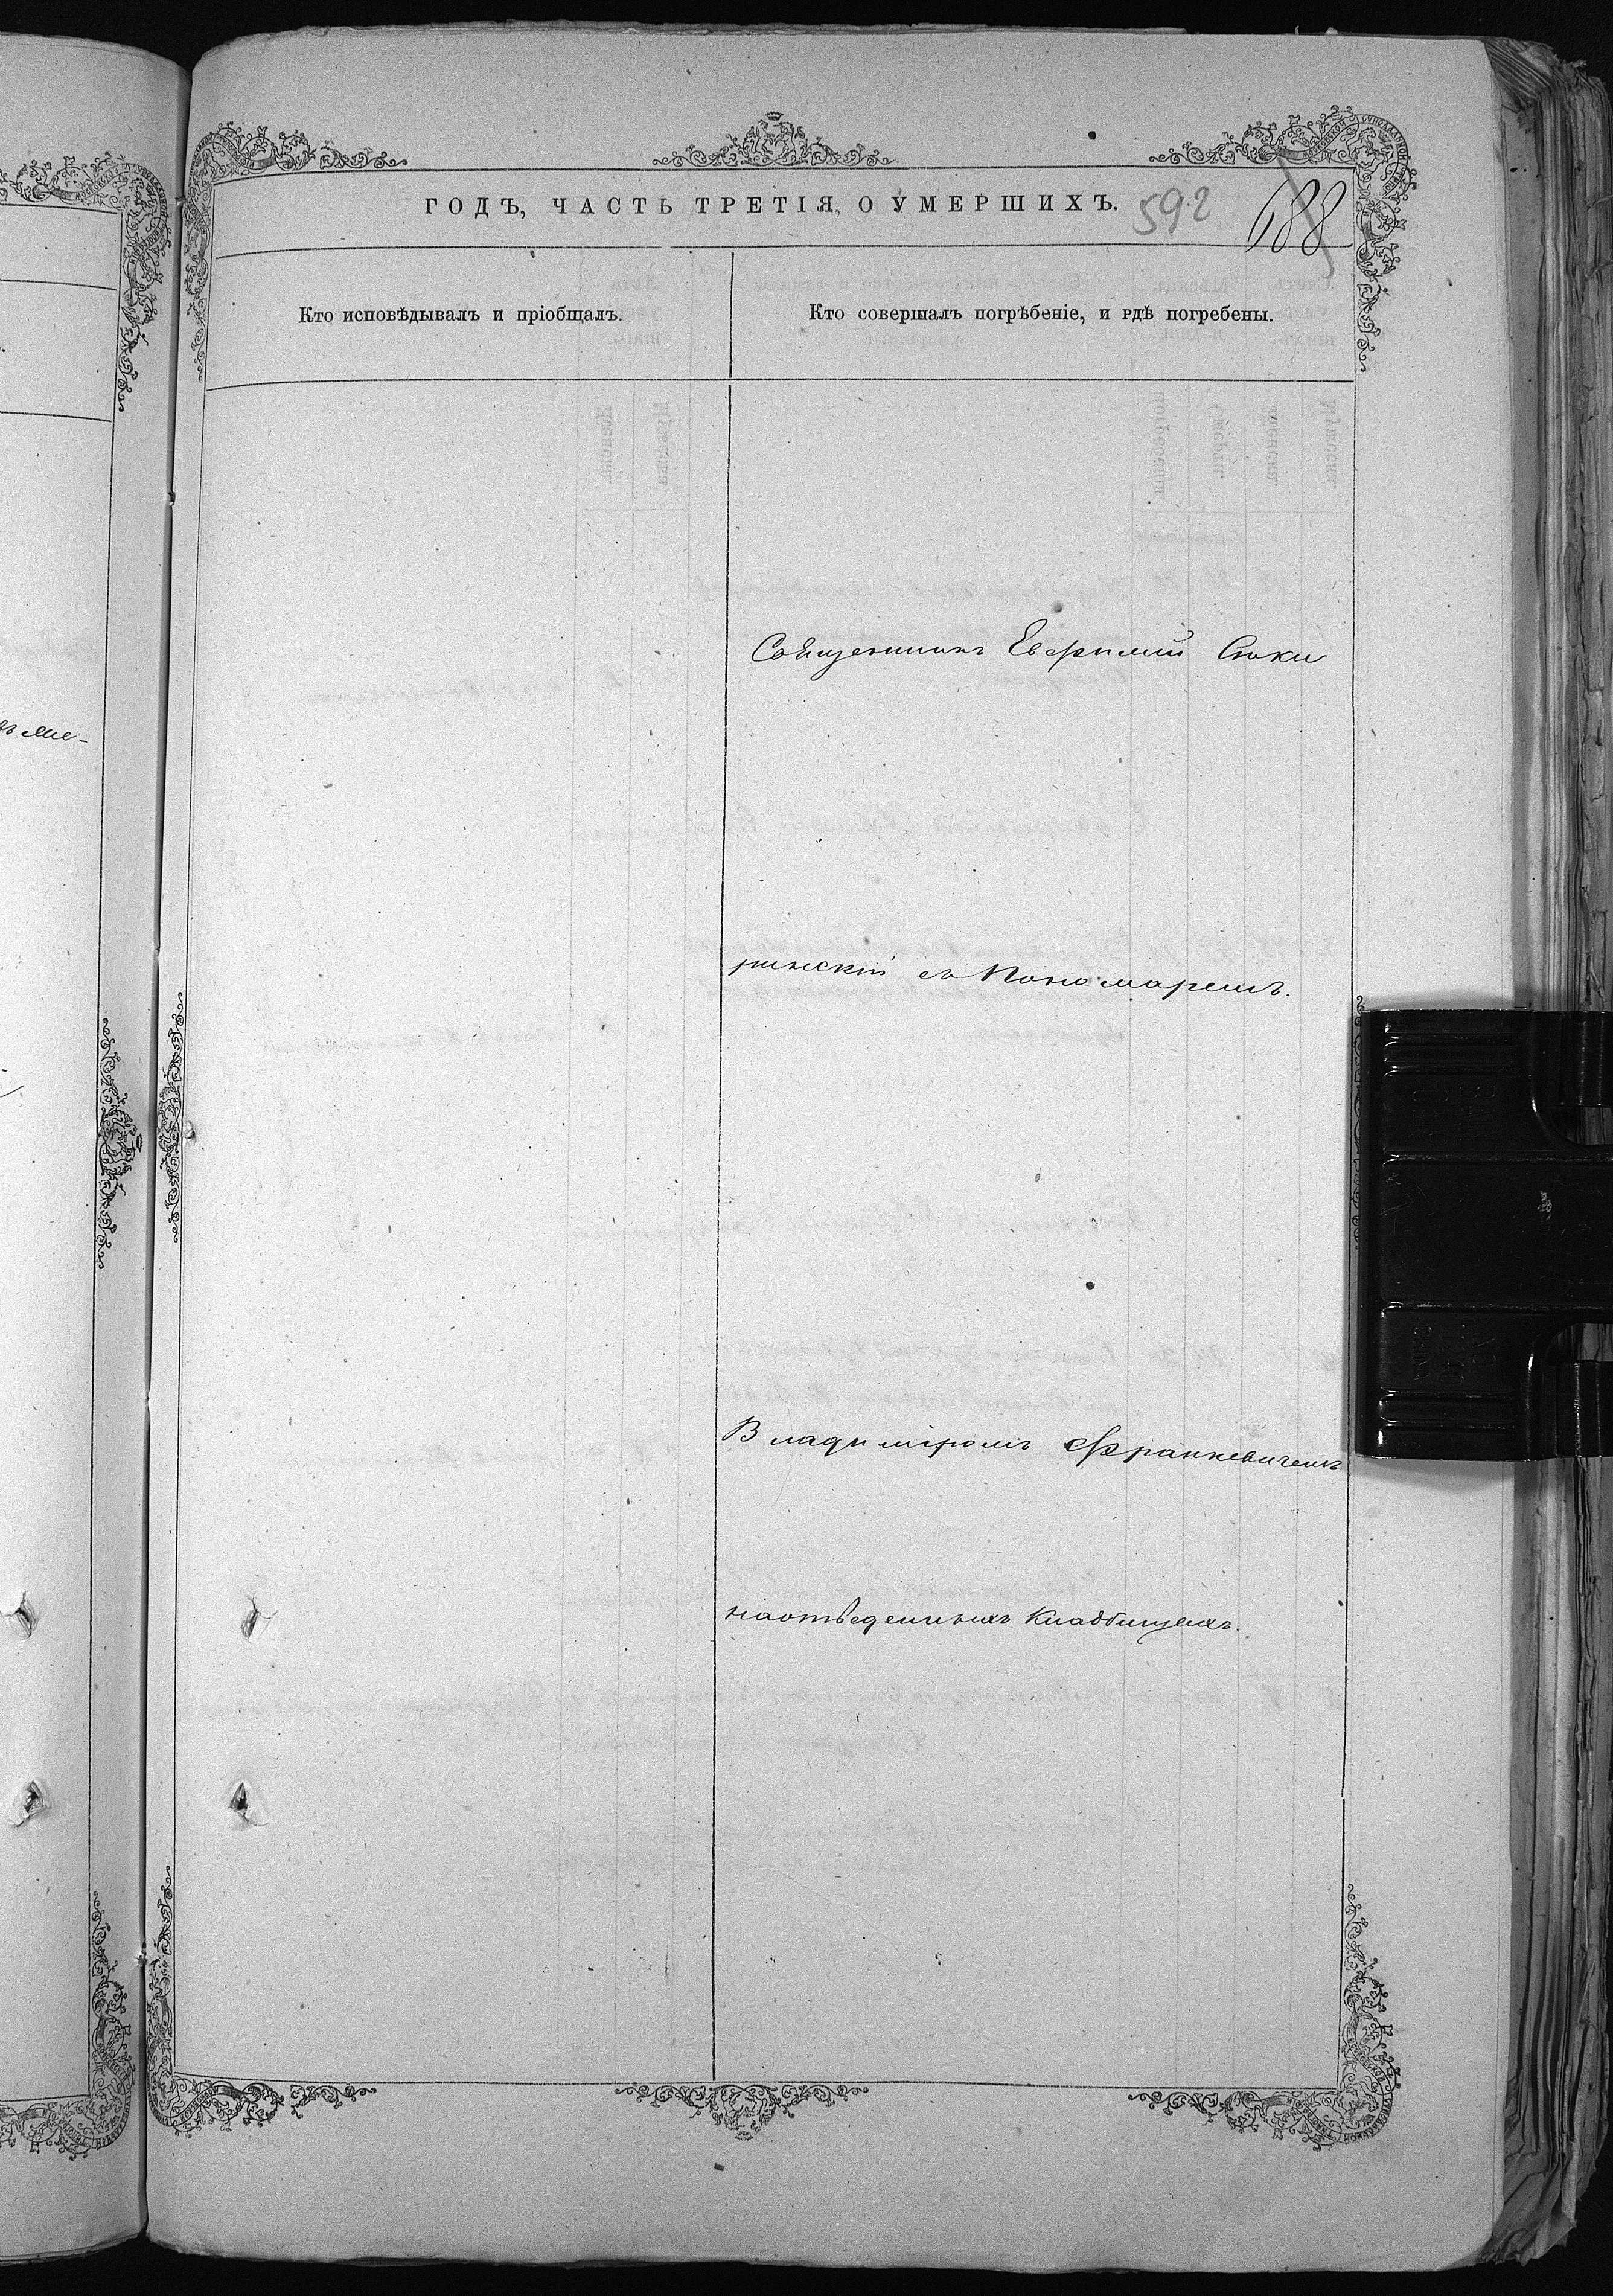 ГОДЪ, ЧАСТЬ ТРЕТІЯ, О УМЕРШИХЪ.
592
688
Кто исповѣдывалъ и пріобщалъ.
Кто совершалъ погрѣбеніе, и гдѣ погребены.
Священникъ Евфимій Сики
ринскій съ Пономаремъ.
Владиміромъ Франкевичемъ
наотведенныхъ Кладбищахъ.
ъ ме-